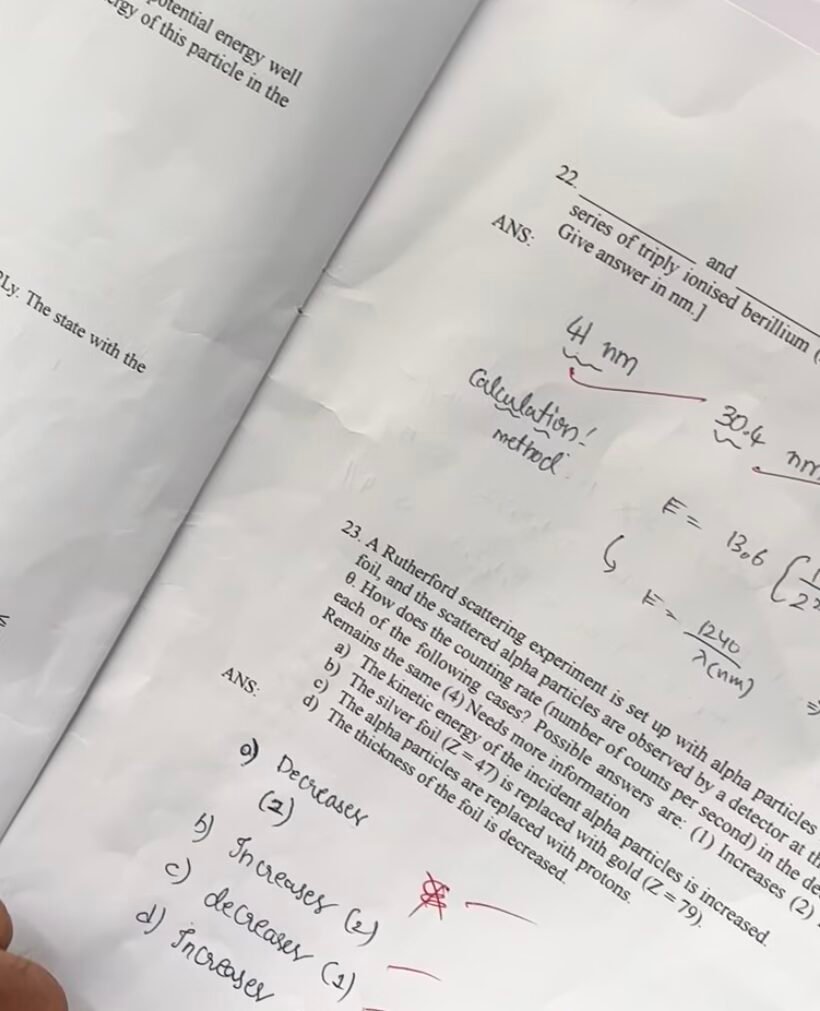 potential energy well
rgy of this particle in the
Ly. The state with the
22. and
series of triply ionised berillium (
Give answer in nm.]
ANS:
41 nm
30.4 nm
Calculation!
method
E = 13.6
E = 1240
λ(nm)
23. A Rutherford scattering experiment is set up with alpha particles
foil, and the scattered alpha particles are observed by a detector at th
θ. How does the counting rate (number of counts per second) in the de
each of the following cases? Possible answers are: (1) Increases (2)
Remains the same (4) Needs more information
a) The kinetic energy of the incident alpha particles is increased.
b) The silver foil (Z = 47) is replaced with gold (Z = 79).
c) The alpha particles are replaced with protons.
d) The thickness of the foil is decreased.
ANS:
a) Decreases
(2)
b) Increases (2)
c) decreases (1)
d) Increases